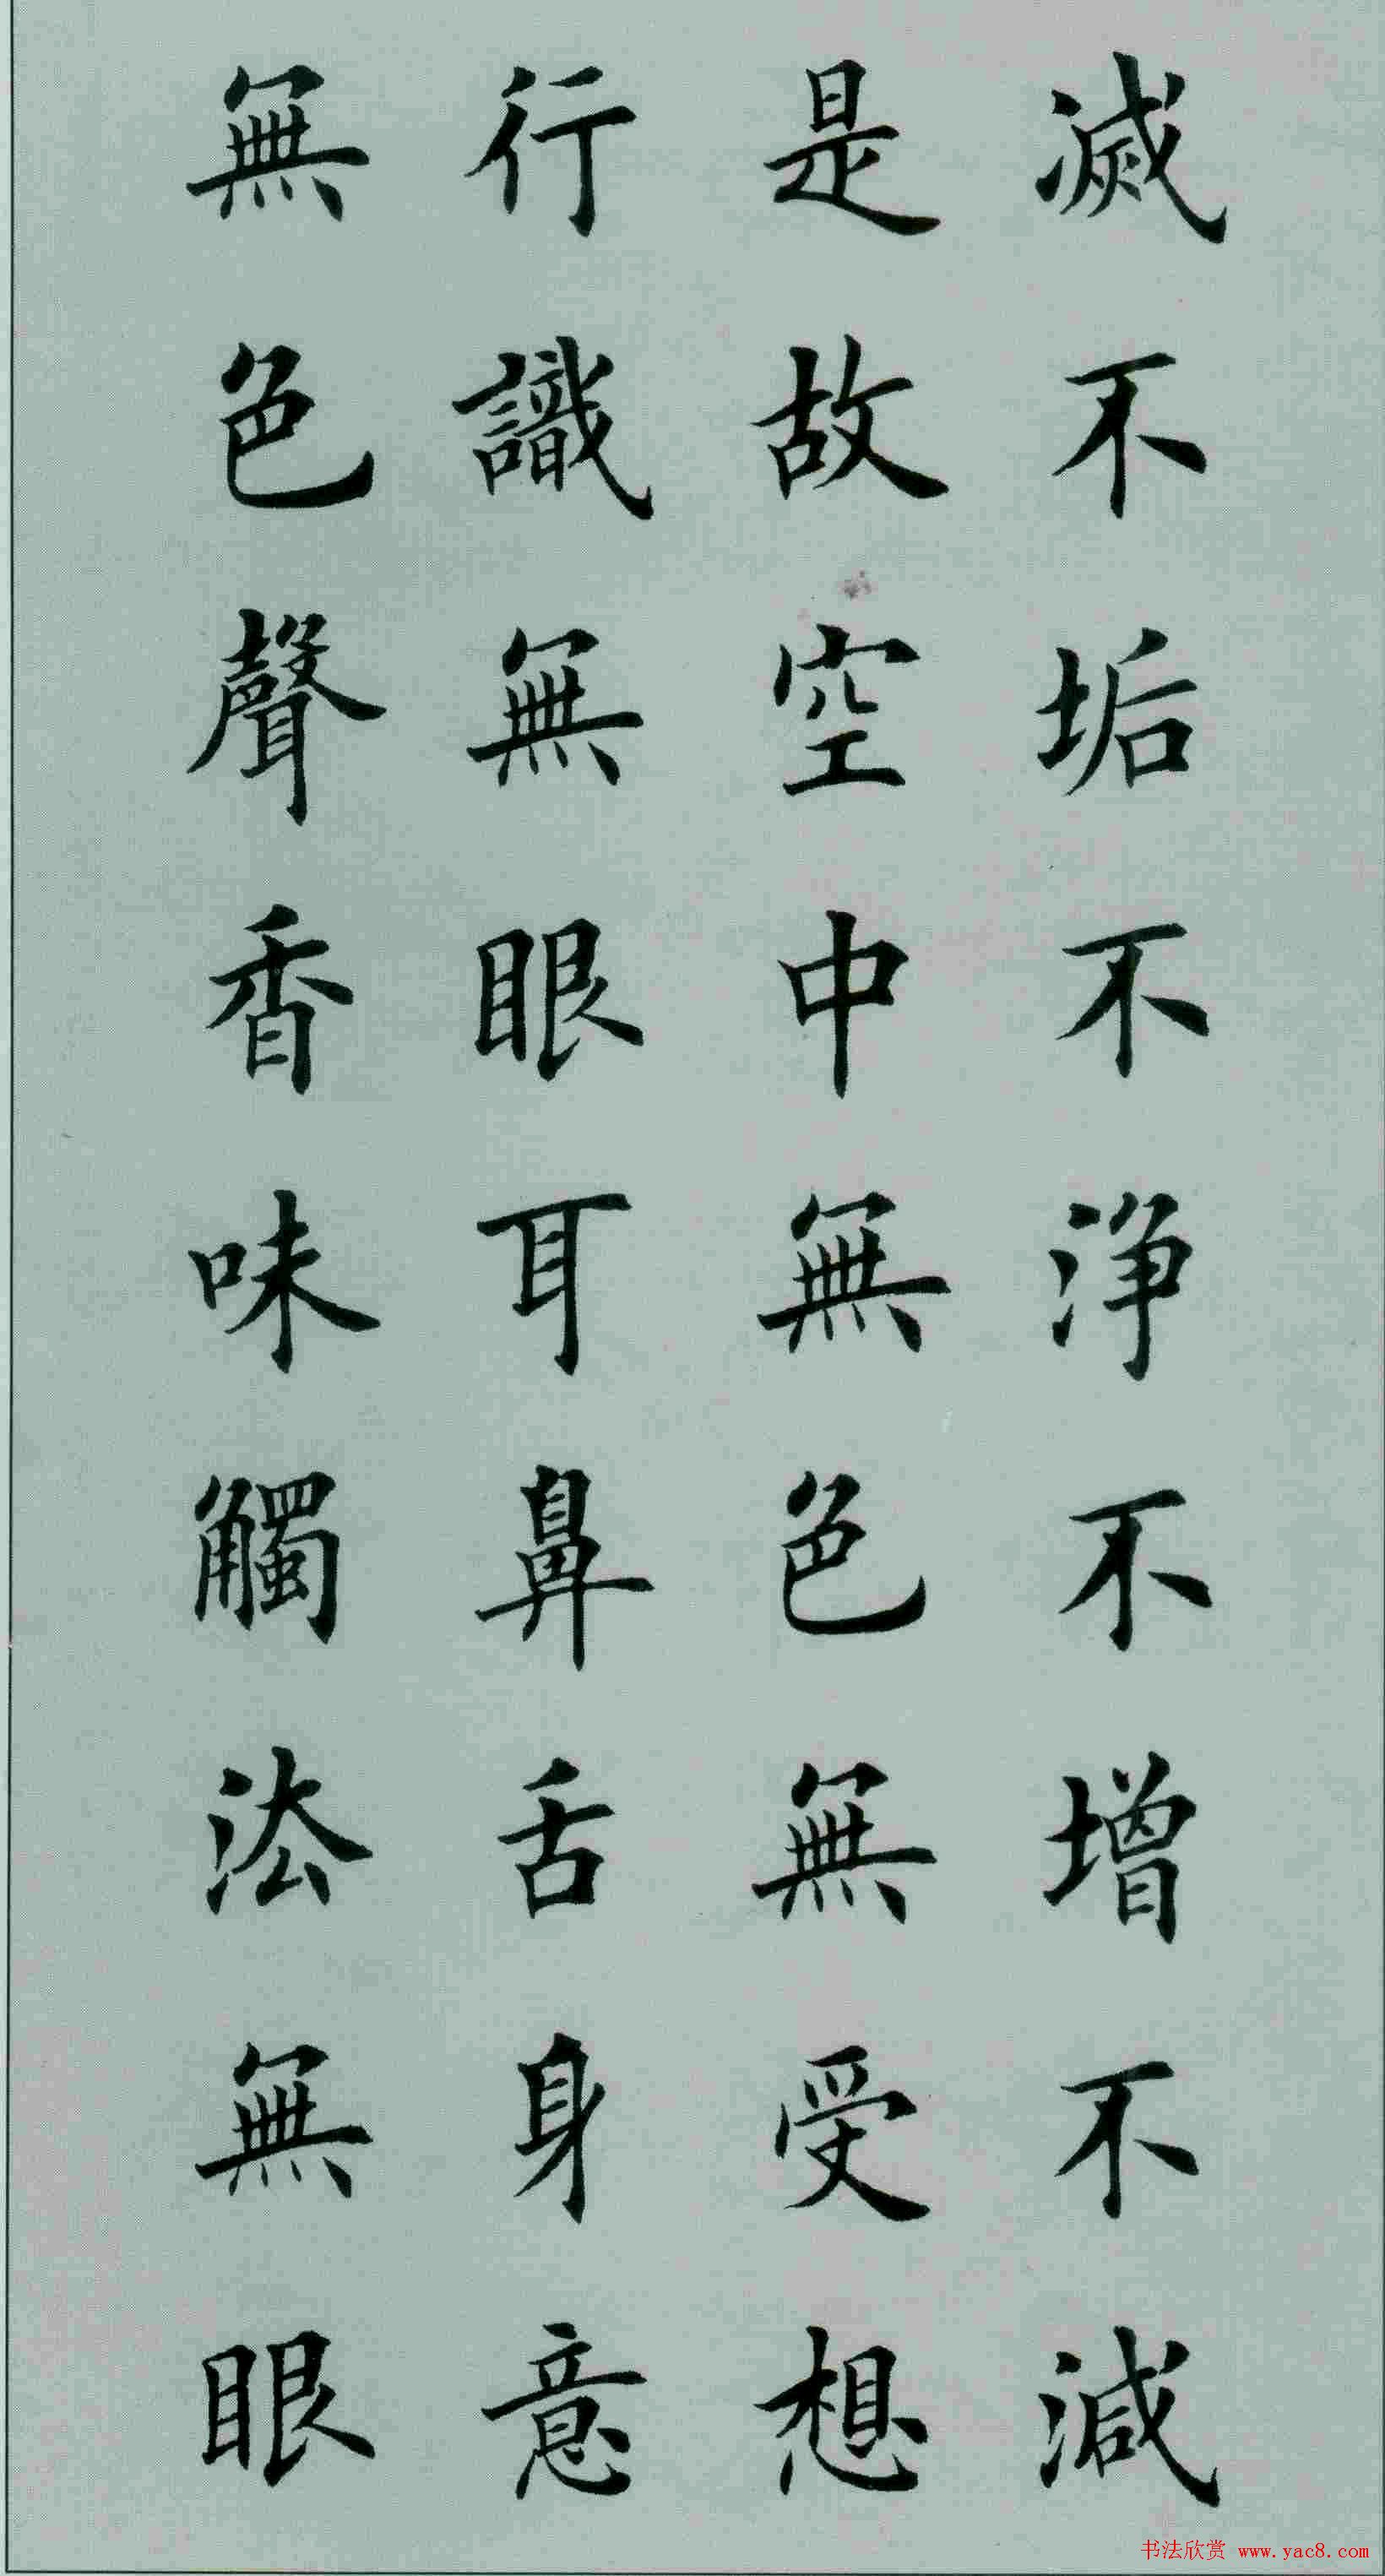 滅不垢不浄不增不減
是故空中無色無受想
行識無眼耳鼻舌身意
無色聲香味觸法無眼
书法欣赏 www.yac8.com